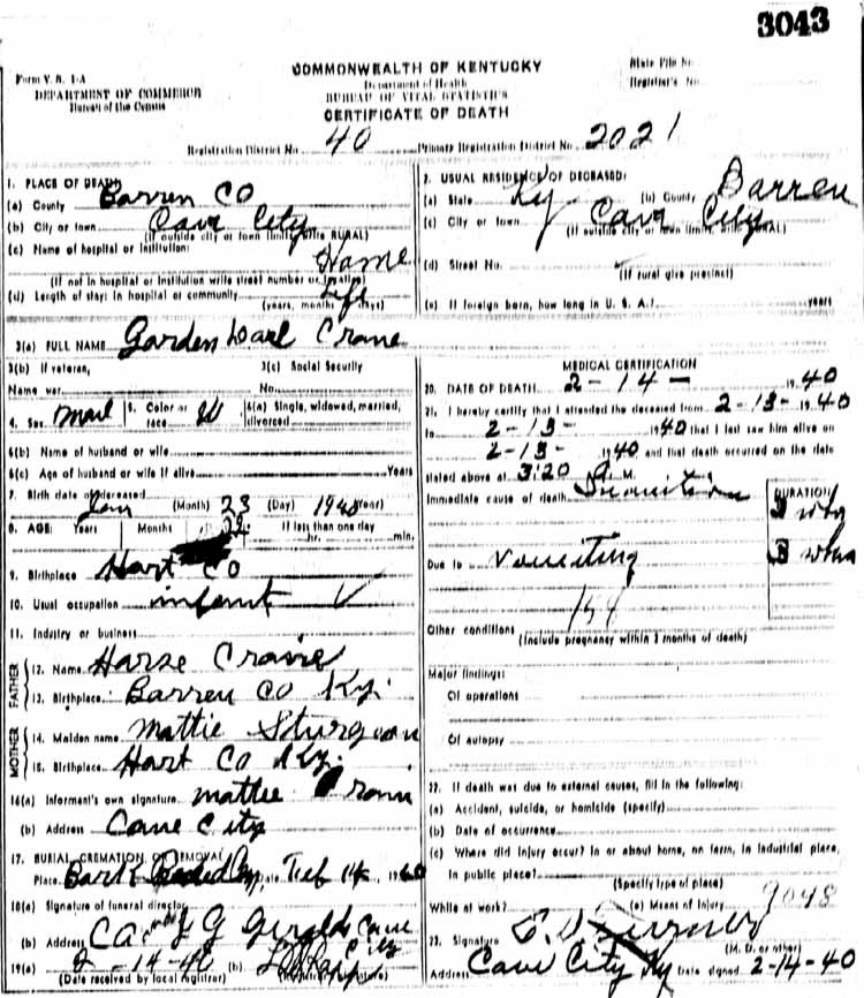 3043
COMMONWEALTH OF KENTUCKY
State File No.
Form V. S. 1-A
Department of Health
Registrar's No.
DEPARTMENT OF COMMERCE
BUREAU OF VITAL STATISTICS
Bureau of the Census
CERTIFICATE OF DEATH
Registration District No. 40 Primary Registration District No. 2021
1. PLACE OF DEATH:
(a) County Barren Co
(b) City or town Cave City
(If outside city or town limits, write RURAL)
(c) Name of hospital or institution:
Home
(If not in hospital or institution write street number or location)
(d) Length of stay: in hospital or community Life
(years, months or days)
2. USUAL RESIDENCE OF DECEASED:
(a) State Ky (b) County Barren
(c) City or town Cave City
(If outside city or town limits, write RURAL)
(d) Street No.
(If rural give precinct)
(e) If foreign born, how long in U. S. A.? years
3(a) FULL NAME Garden Crane
3(b) If veteran, 3(c) Social Security
Name war No.
4. Sex Mail 5. Color or race W 6(a) Single, widowed, married, divorced
6(b) Name of husband or wife
6(c) Age of husband or wife if alive Years
7. Birth date of deceased Jan (Month) 23 (Day) 1940 (Year)
8. AGE: Years Months If less than one day
hr. min.
9. Birthplace Hart Co
10. Usual occupation infant
11. Industry or business
FATHER
12. Name Crane
13. Birthplace Barren Co Ky.
MOTHER
14. Maiden name Mattie Sturgeon
15. Birthplace Hart Co Ky.
16(a) Informant's own signature Mattie
(b) Address Cave City
17. BURIAL, CREMATION, OR REMOVAL
Place Date Feb 14, 1940
18(a) Signature of funeral director
(b) Address
19(a) 2-14-40 (b)
(Date received by local registrar) (Registrar's signature)
MEDICAL CERTIFICATION
20. DATE OF DEATH 2-14- 1940
21. I hereby certify that I attended the deceased from 2-13- 1940
to 2-13- 1940 that I last saw him alive on
2-13- 1940 and that death occurred on the date
stated above at 3:20 M.
Immediate cause of death
DURATION
3
Due to Vomiting 3
Other conditions
(Include pregnancy within 3 months of death)
Major findings:
Of operations
Of autopsy
22. If death was due to external causes, fill in the following:
(a) Accident, suicide, or homicide (specify)
(b) Date of occurrence
(c) Where did injury occur? In or about home, on farm, in industrial place,
in public place?
(Specify type of place)
While at work? (e) Means of Injury 9048
23. Signature
(M. D. or other)
Address Cave City Ky Date signed 2-14-40